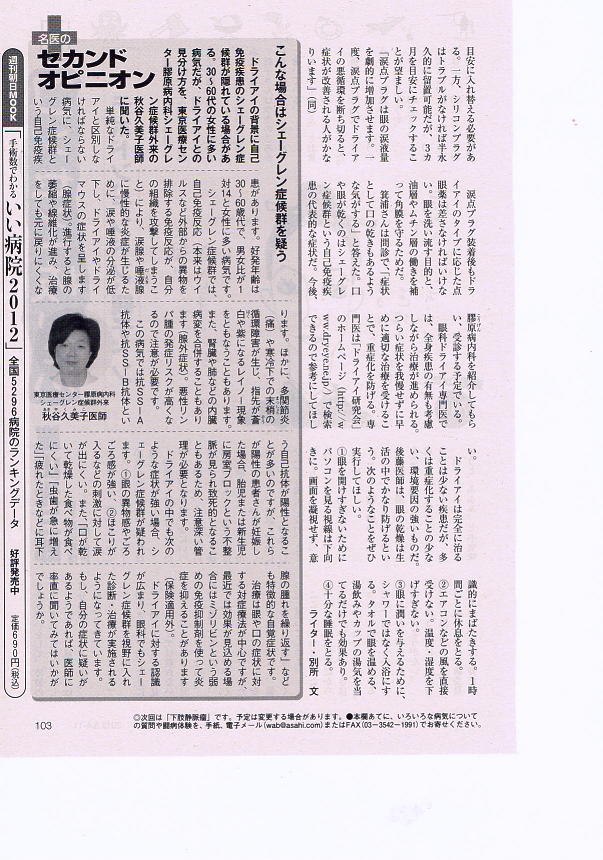 目安に入れ替える必要があ
る。一方、シリコンプラグ
はトラブルがなければ半永
久的に留置可能だが、3カ
月を目安にチェックするこ
とが望ましい。
「涙点プラグは眼の涙液量
を劇的に増加させます。一
度、涙点プラグでドライア
イの悪循環を断ち切ると、
症状が改善される人がかな
りいます」(同)
涙点プラグ装着後もドラ
イアイのタイプに応じた点
眼薬は差さなければいけな
い。眼を洗い流す目的と、
油層やムチン層の働きを補
って角膜を守るためだ。
箕浦さんは問診で、「症状
として口の乾きもあるよう
な気がする」と答えた。口
や眼が乾くのはシェーグレ
ン症候群という自己免疫疾
患の代表的な症状だ。今後、
膠原病内科を紹介してもら
い、受診する予定でいる。
眼科ドライアイ専門医で
は、全身疾患の有無も考慮
しながら治療が進められる。
つらい症状を我慢せずに早
めに適切な治療を受けるこ
とで、重症化を防げる。専
門医は「ドライアイ研究会」
のホームページ(http://w
ww.dryeye.ne.jp/)で検索
できるので参考にしてほし
い。
ドライアイは完全に治る
ことは少ない疾患だが、多
くは重症化することの少な
い、環境要因の強いものだ。
後藤医師は、眼の乾燥は生
活の中でかなり防げるとい
う。次のようなことをぜひ
実行してほしい。
①眼を開けすぎないために
パソコンを見る視線は下向
きに。画面を凝視せず、意
識的にまばたきする。1時
間ごとに休息をとる。
②エアコンなどの風を直接
受けない。温度・湿度を下
げすぎない。
③眼に潤いを与えるために、
シャワーではなく入浴にす
る。タオルで眼を温める、
湯飲みやカップの湯気を当
てるだけでも効果あり。
④十分な睡眠をとる。
ライター・別所 文
名医の
セカンド
オピニオン
こんな場合はシェーグレン症候群を疑う
ドライアイの背景に自己
免疫疾患のシェーグレン症
候群が隠れている場合があ
る。30～60代の女性に多い
病気だが、ドライアイとの
見分け方を、東京医療セン
ター膠原病内科シェーグレ
ン症候群外来の
秋谷久美子医師
に聞いた。
単純なドライ
アイと区別しな
ければならない
病気に、シェー
グレン症候群と
いう自己免疫疾
患があります。好発年齢は
30～60歳代で、男女比が1
対14と女性に多い病気です。
シェーグレン症候群では、
自己免疫反応(本来はウイ
ルスなど外部からの異物を
排除する免疫反応が、自分
の組織を攻撃してしまうこ
と)により、涙腺や唾液腺
に慢性的な炎症が生じるた
めに、涙や唾液の分泌が低
下し、ドライアイやドライ
マウスの症状を呈します
(腺症状)。進行すると腺の
萎縮や線維化が進み、治療
をしても元に戻りにくくな
ります。ほかに、多関節炎
(痛)や寒冷下での末梢の
循環障害が生じ、指先が蒼
白や紫になるレイノー現象
をともなうこともあります。
また、腎臓や肺などの内臓
病変を合併することもあり
ます(腺外症状)。悪性リン
パ腫の発症リスクが高くな
るので注意が必要です。
この病気では抗SS-A
抗体や抗SS-B抗体とい
東京医療センター膠原病内科
シェーグレン症候群外来
秋谷久美子医師
う自己抗体が陽性となるこ
とが多いのですが、これら
が陽性の患者さんが妊娠し
た場合、胎児または新生児
に房室ブロックという不整
脈が見られ致死的となるこ
ともあるため、注意深い管
理が必要となります。
ドライアイの中でも次の
ような症状が強い場合、シ
ェーグレン症候群が疑われ
ます。①眼の異物感やごろ
ごろ感が強い、②ほこりが
入るなどの刺激に対して涙
が出にくい。また、「口が乾
いて乾燥した食べ物が食べ
にくい」「虫歯が急に増え
た」「疲れたときなどに耳下
腺の腫れを繰り返す」など
も特徴的な自覚症状です。
治療は眼や口の症状に対
する対症療法が中心ですが、
最近では効果が見込める場
合にはミゾリビンという弱
めの免疫抑制剤を使って炎
症を抑えることがあります
(保険適用外)。
ドライアイに対する認識
が広まり、眼科でもシェー
グレン症候群を視野に入れ
た診断・治療が実施される
ようになってきています。
もし、自分の症状に疑いが
あるようであれば、医師に
率直に聞いてみてはいかが
でしょうか。
週刊朝日MOOK
「手術数でわかる
いい病院2012」
全国5296病院のランキングデータ
好評発売中
定価690円(税込)
◎次回は「下肢静脈瘤」です。予定は変更する場合があります。●本欄あてに、いろいろな病気について
の質問や闘病体験を、手紙、電子メール(wab@asahi.com)またはFAX(03-3542-1991)でお寄せください。
103